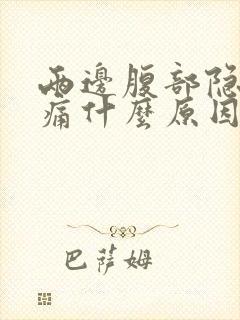 兩邊腹部隐
痛什麽原因
巴萨姆